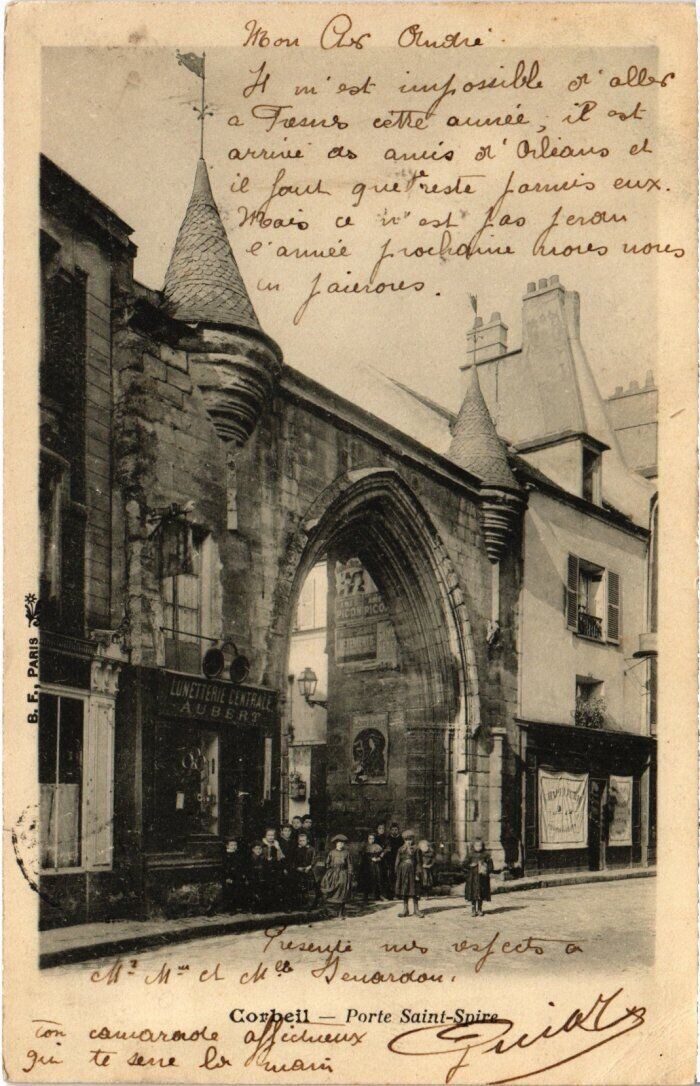 Mon Cher André.
Il m'est impossible d'aller
a Fresnes cette année, il est
arrivé des amis d'Orléans et
il faut que reste parmis eux.
Mais ce n'est pas perdu
l'année prochaine nous nous
en paierons.
B. F., PARIS
LUNETTERIE CENTRALE
AUBERT
PICON PICON
Présente mes respects a
Mr Mme et Mlle
Corbeil — Porte Saint-Spire
ton camarade affectueux
qui te serre la main